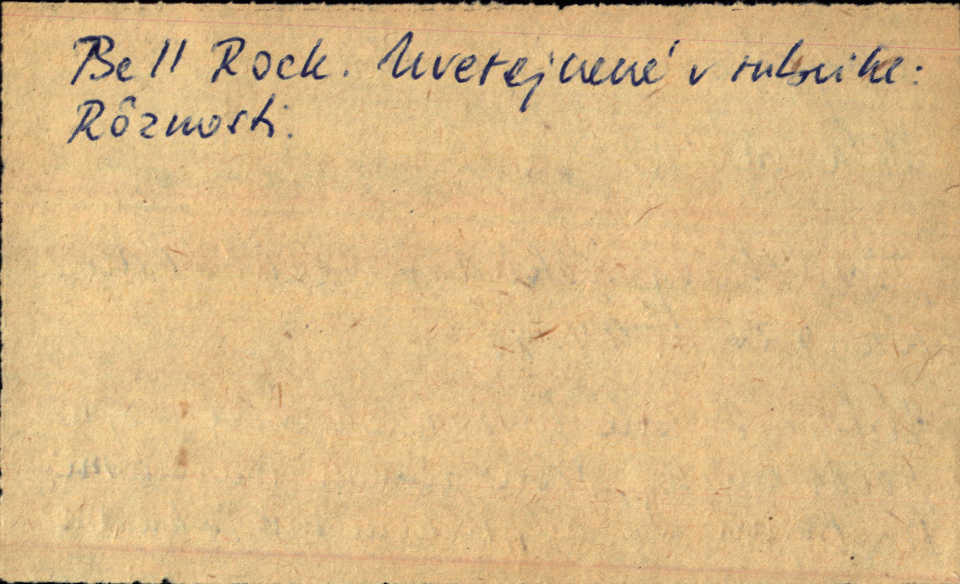 Bell Rock. Uverejnené v rubrike:
Rôznosti.